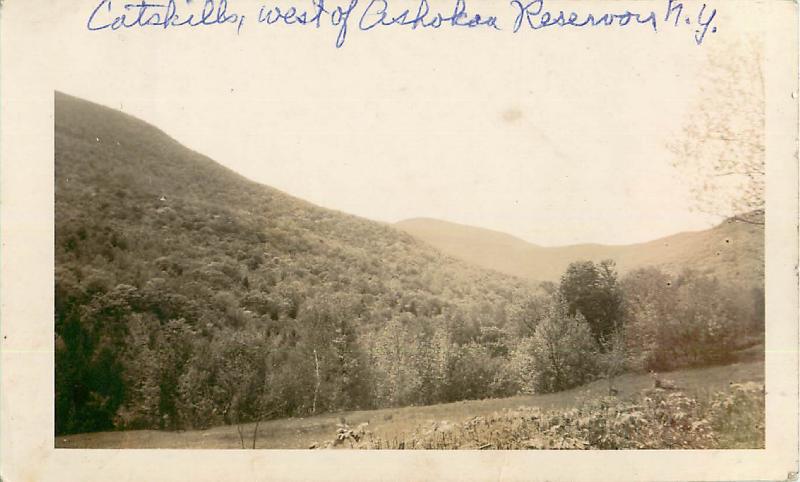 Catskills, west of Ashokan Reservoir N.Y.